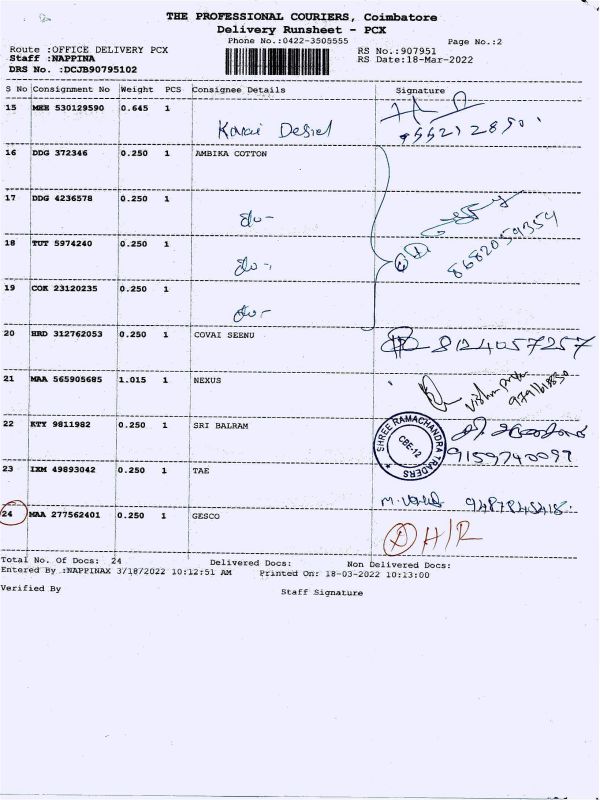 THE PROFESSIONAL COURIERS, Coimbatore
Delivery Runsheet - PCX
Phone No.:0422-3505555
Page No.:2
Route :OFFICE DELIVERY PCX
RS No.:907951
Staff :NAPPINA
RS Date:18-Mar-2022
DRS No. :DCJB90795102
S No Consignment No Weight PCS Consignee Details Signature
15 MEE 530129590 0.645 1
Kovai Desiel
16 DDG 372346 0.250 1 AMBIKA COTTON
17 DDG 4236578 0.250 1
do-
18 TUT 5974240 0.250 1
do-
8682059354
19 COK 23120235 0.250 1
do-
20 HRD 312762053 0.250 1 COVAI SEENU 8124057257
21 MAA 565905685 1.015 1 NEXUS
22 KTY 9811982 0.250 1 SRI BALRAM
SHREE RAMACHANDRA TRADERS
CBE-12
9159740097
23 IXM 49893042 0.250 1 TAE
9487845418
24 MAA 277562401 0.250 1 GESCO
H/R
Total No. Of Docs: 24 Delivered Docs: Non Delivered Docs:
Entered By :NAPPINAX 3/18/2022 10:12:51 AM Printed On: 18-03-2022 10:13:00
Verified By
Staff Signature